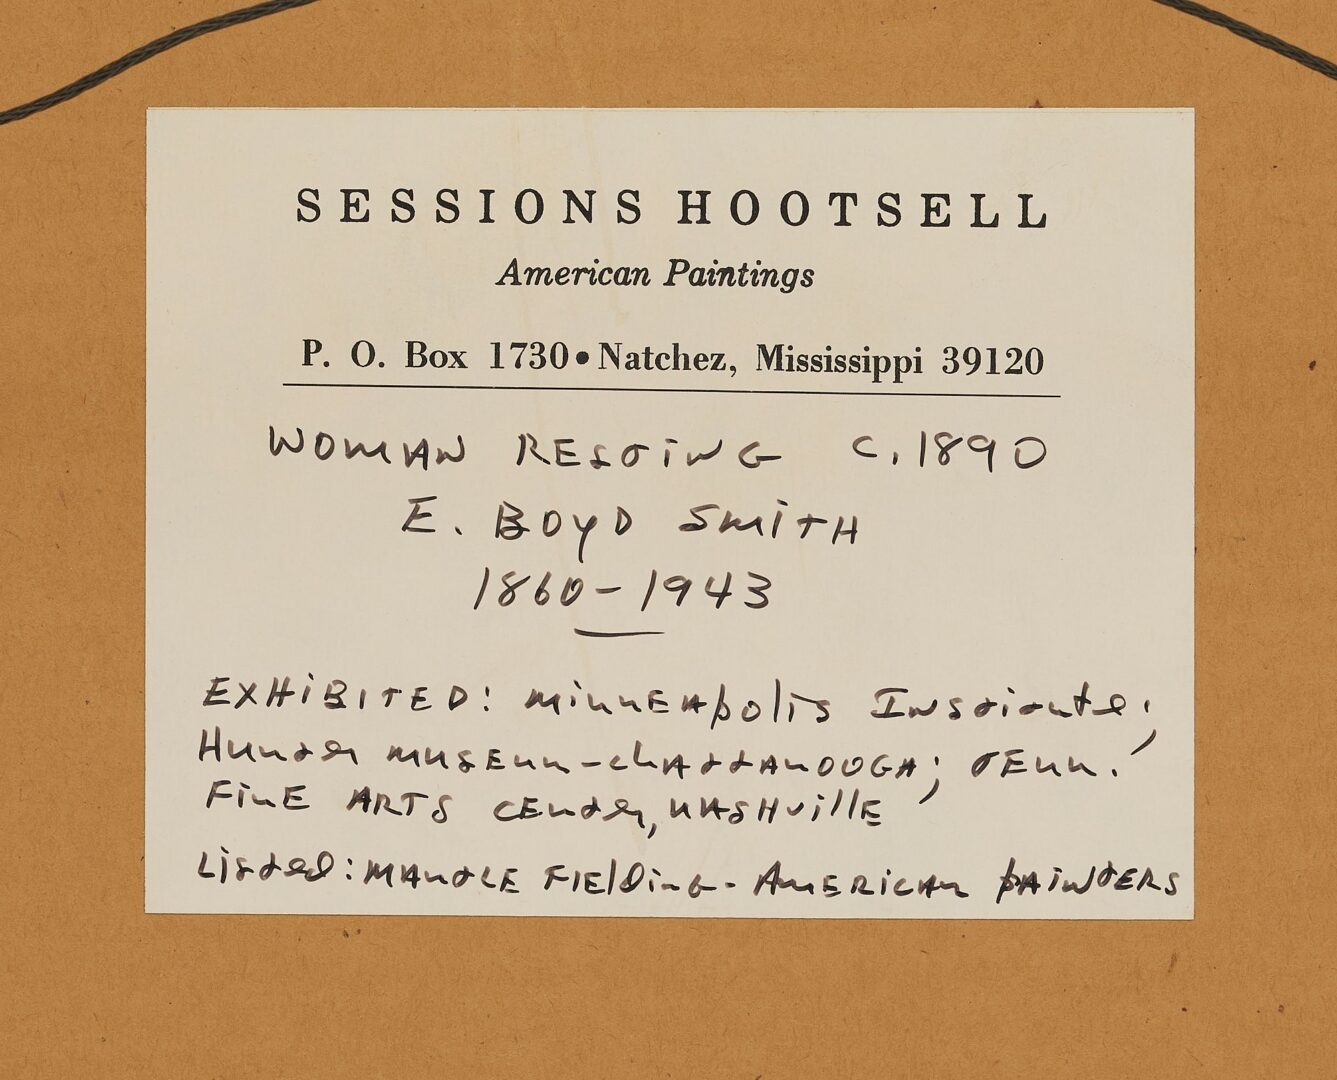 SESSIONS HOOTSELL
American Paintings
P. O. Box 1730 • Natchez, Mississippi 39120
WOMAN RESTING C. 1890
E. BOYD SMITH
1860-1943
EXHIBITED: MINNEAPOLIS INSTITUTE;
HUNTER MUSEUM-CHATTANOOGA; TENN.
FINE ARTS CENTER, NASHVILLE
Listed: MANTLE FIELDING - AMERICAN PAINTERS